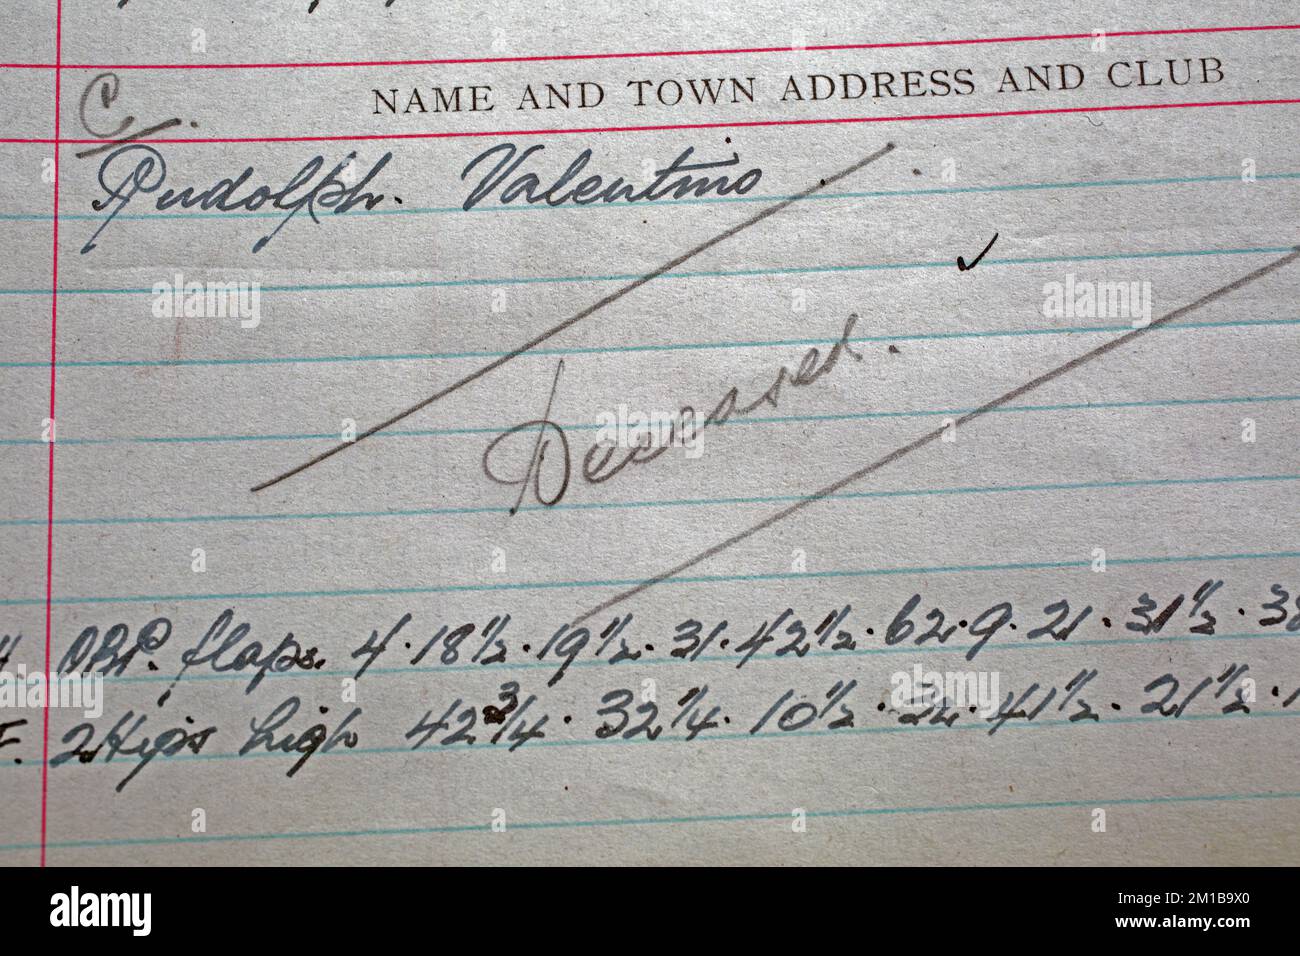 C/.
NAME AND TOWN ADDRESS AND CLUB
Rudolph. Valentino
Deceased.
flaps. 4. 18½. 19½. 31. 42½. 62. 9. 21. 31½. 38
2 Hips high 42¾. 32¼. 10½. 32. 41½. 21½. 1
alamy
Image ID: 2M1B9X0
www.alamy.com